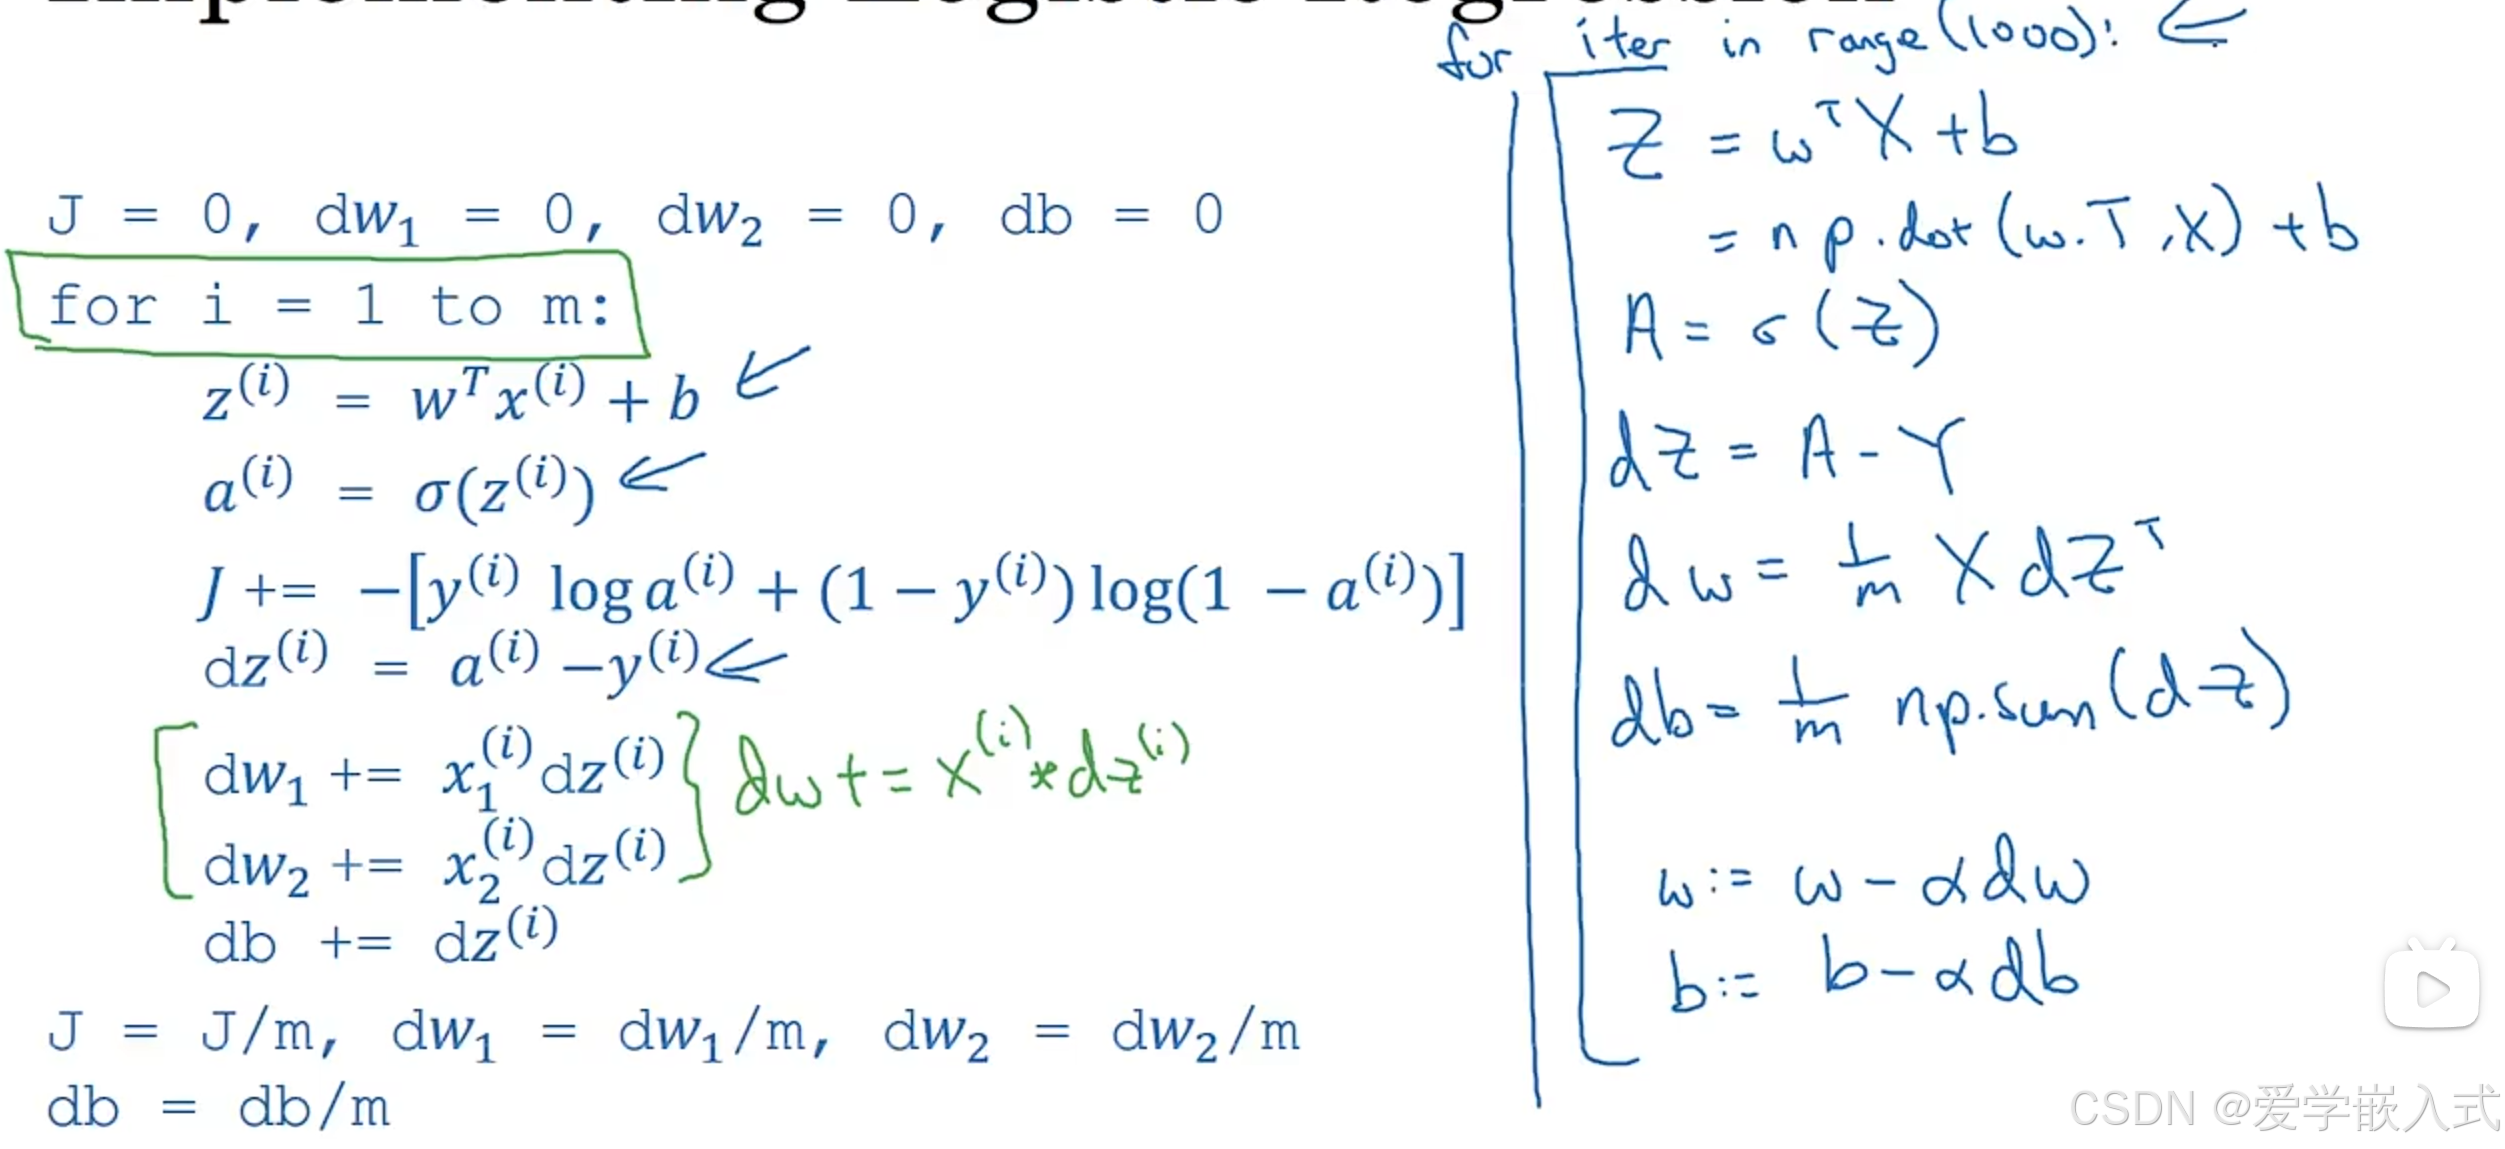 Implementing Logistic Regression
J = 0, dw₁ = 0, dw₂ = 0, db = 0
for i = 1 to m:
z⁽ⁱ⁾ = wᵀx⁽ⁱ⁾ + b
a⁽ⁱ⁾ = σ(z⁽ⁱ⁾)
J += −[y⁽ⁱ⁾ log a⁽ⁱ⁾ + (1 − y⁽ⁱ⁾) log(1 − a⁽ⁱ⁾)]
dz⁽ⁱ⁾ = a⁽ⁱ⁾ −y⁽ⁱ⁾
dw₁ += x₁⁽ⁱ⁾dz⁽ⁱ⁾
dw₂ += x₂⁽ⁱ⁾dz⁽ⁱ⁾
dw += x⁽ⁱ⁾ * dz⁽ⁱ⁾
db += dz⁽ⁱ⁾
J = J/m, dw₁ = dw₁/m, dw₂ = dw₂/m
db = db/m
for iter in range(1000):
Z = wᵀX + b
= np.dot(w.T,X) + b
A = σ(Z)
dZ = A - Y
dw = 1/m X dZᵀ
db = 1/m np.sum(dZ)
w := w - αdw
b := b - αdb
CSDN @爱学嵌入式